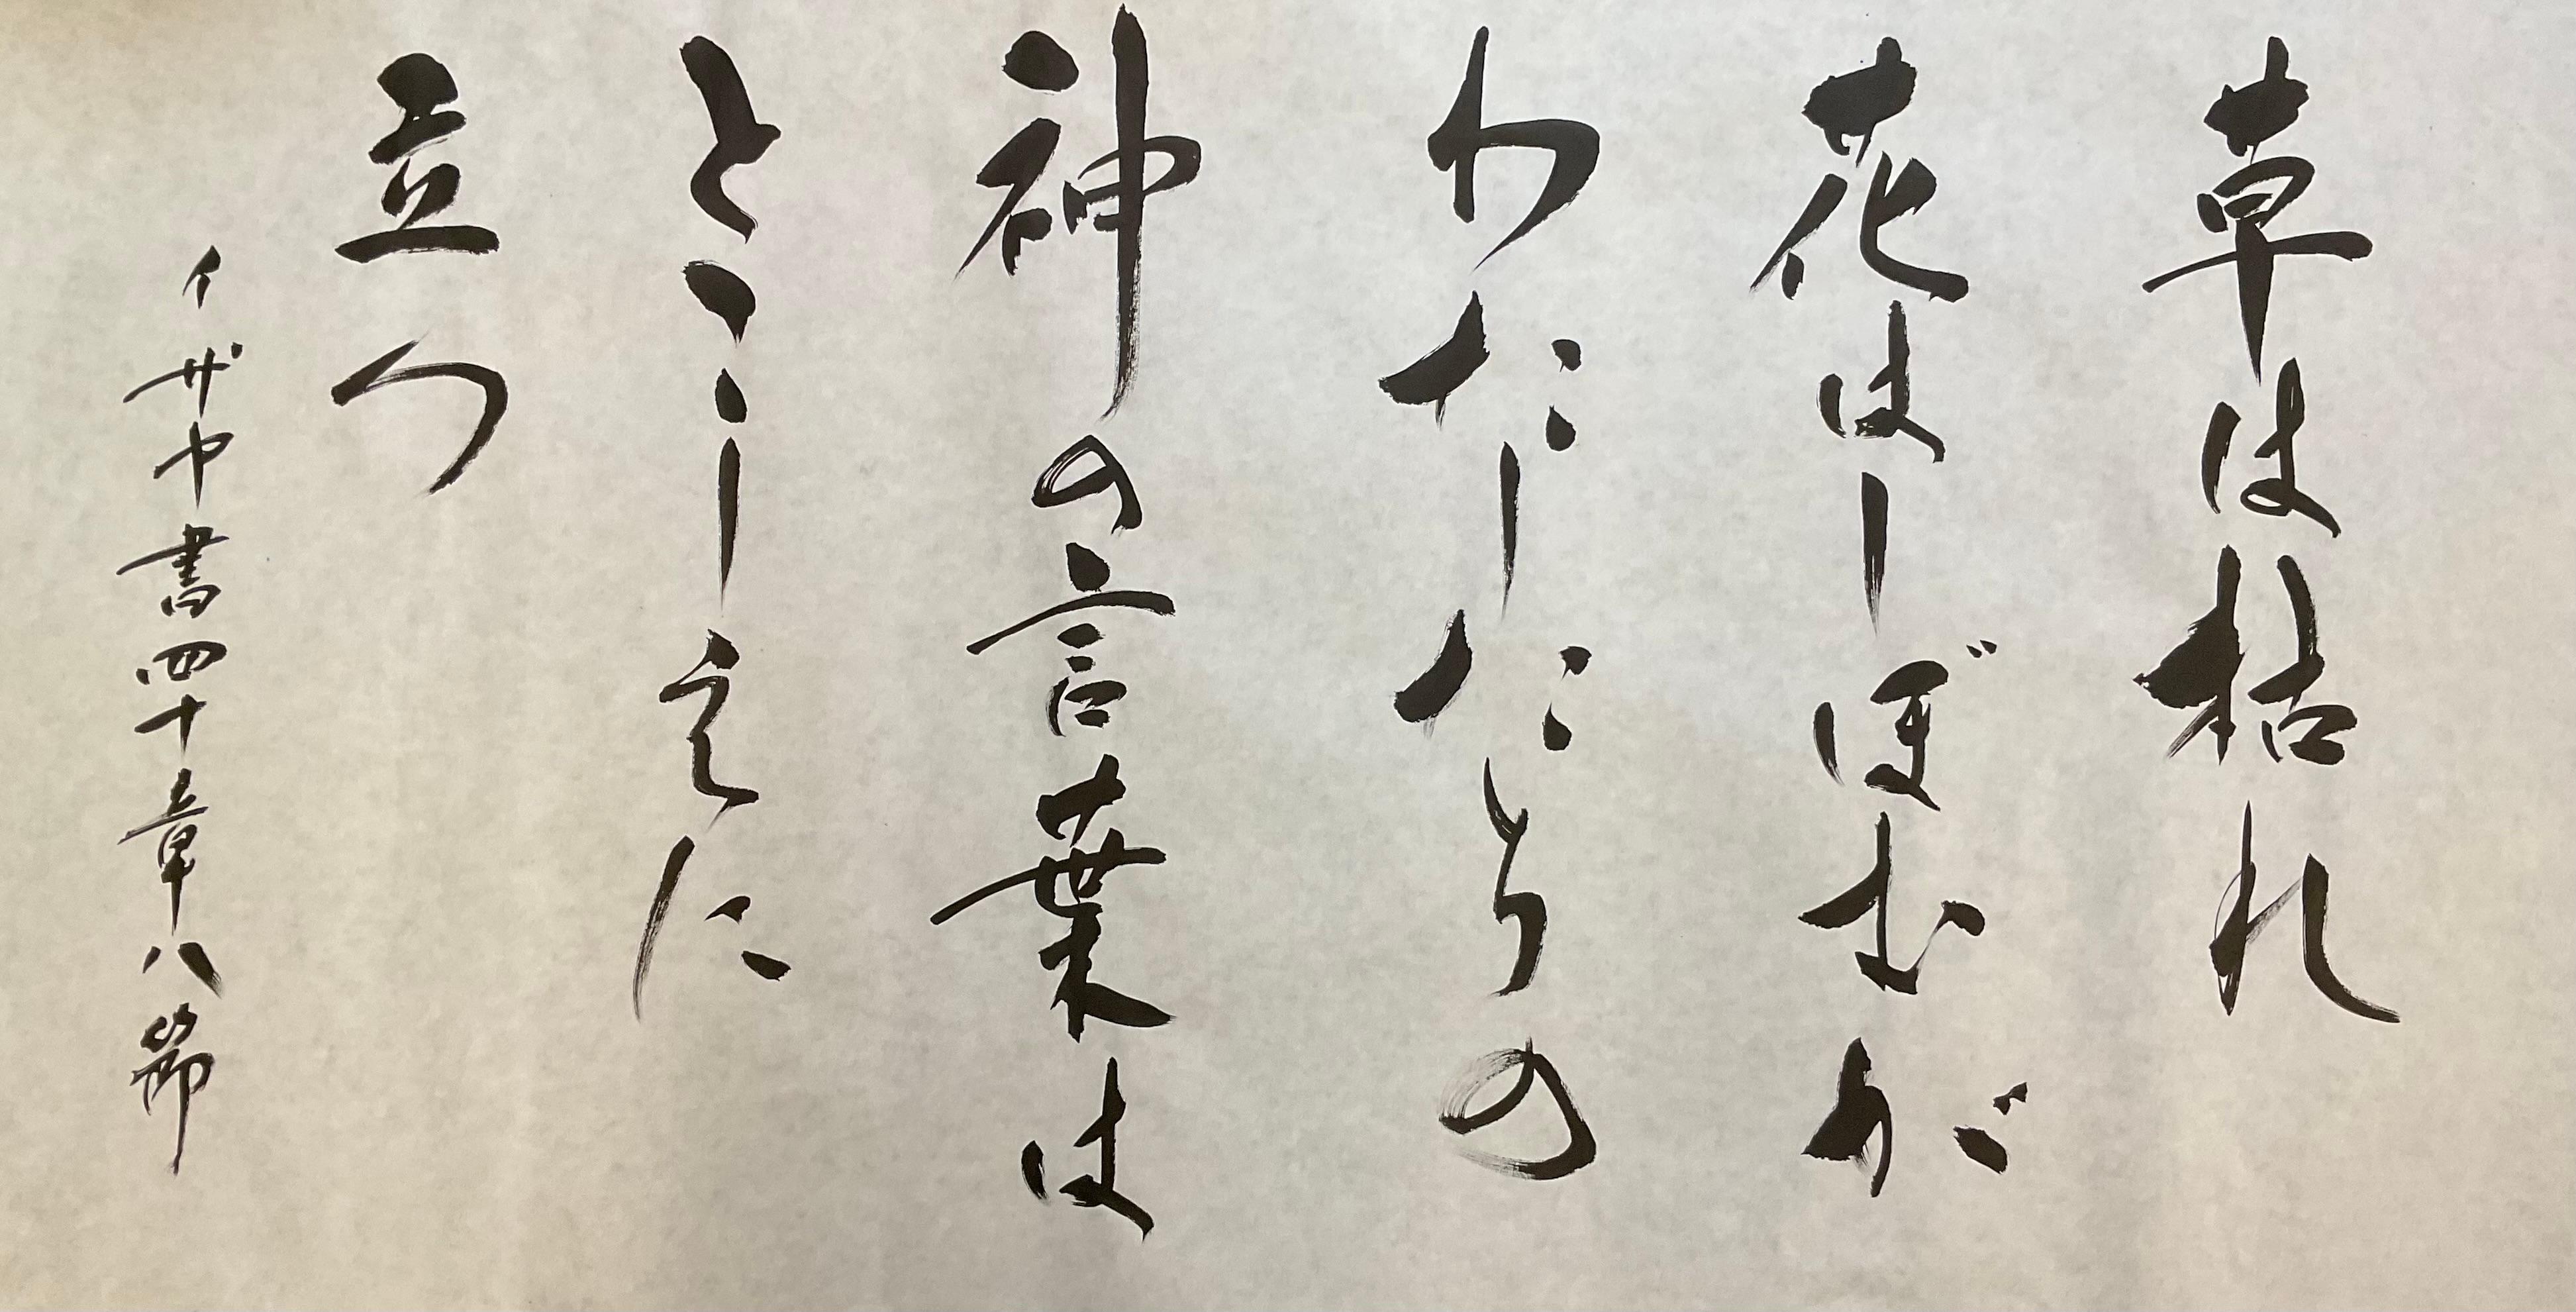 草は枯れ
花はしぼむが
わたしたちの
神の言葉は
とこしえに
立つ
イザヤ書四十章八節